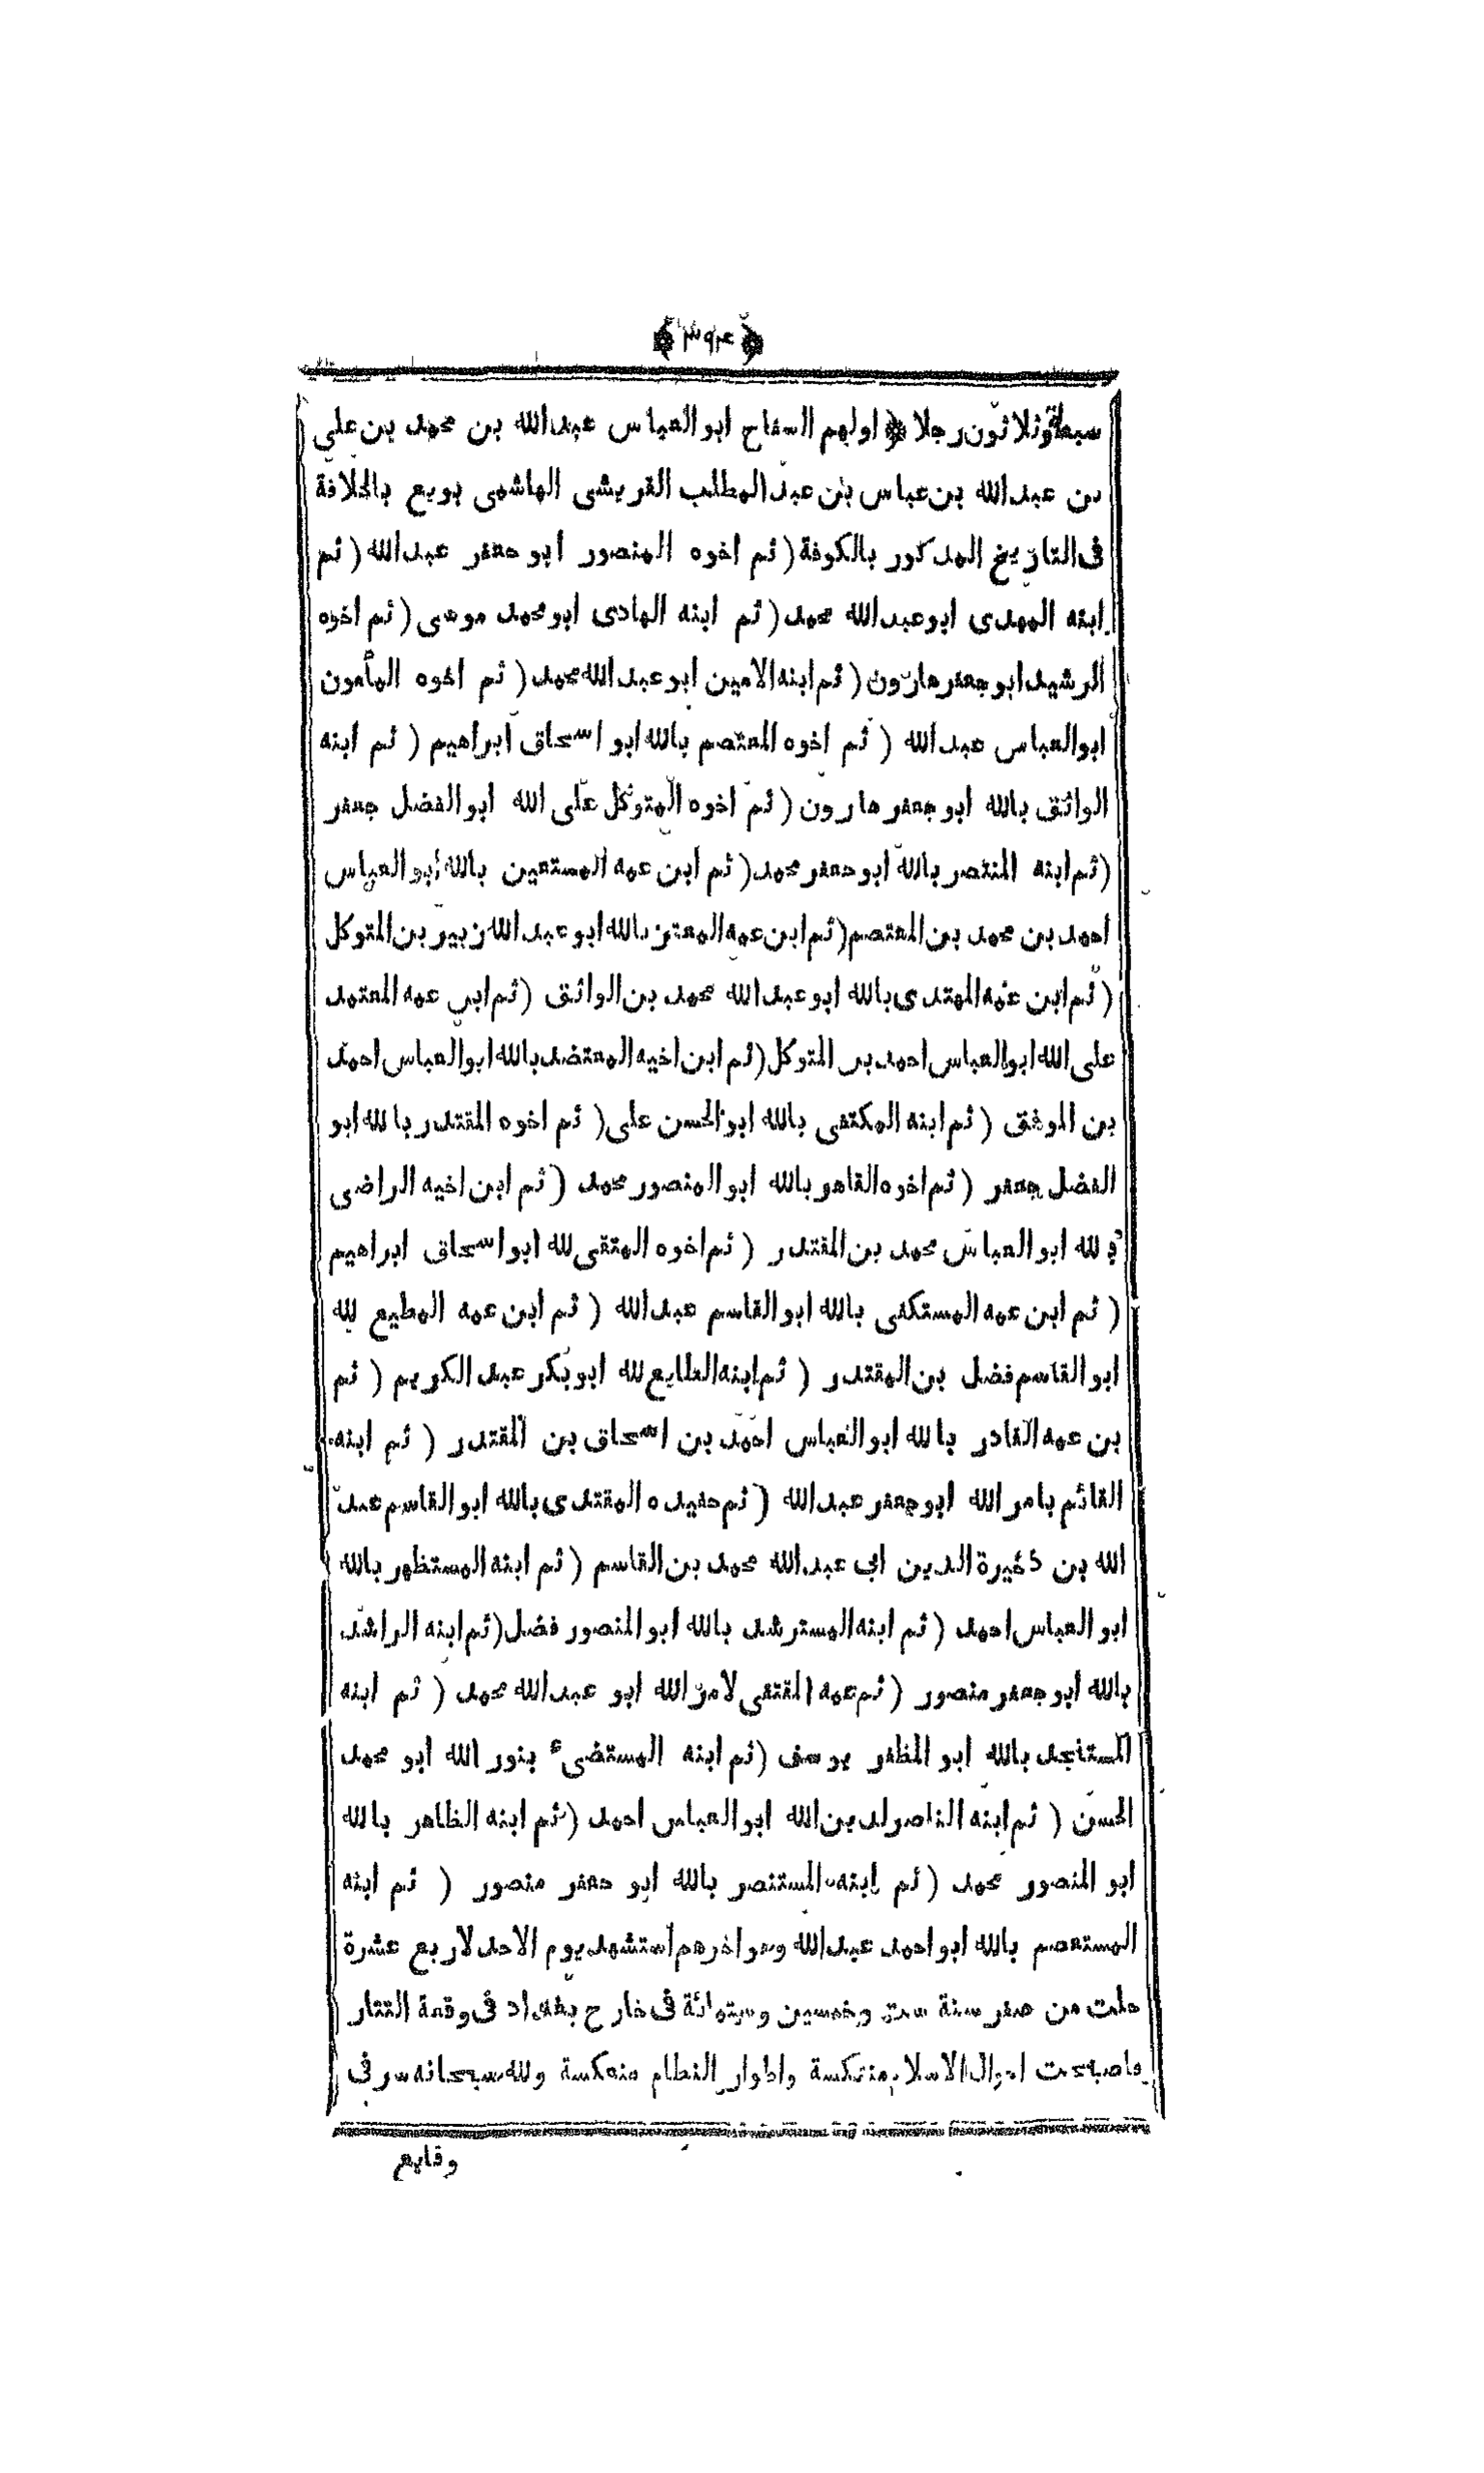 ﴿ ٣٩٤ ﴾
سبعة وثلاثون رجلا ﴿ اولهم السفاح ابو العباس عبد الله بن محمد بن علي
بن عبد الله بن عباس بن عبد المطلب القريشى الهاشمى بويع بالخلافة
فى التاريخ المدكور بالكوفة ( ثم اخوه المنصور ابو جعفر عبد الله ( ثم
ابنه المهدى ابو عبد الله محمد ( ثم ابنه الهادى ابو محمد موسى ( ثم اخوه
الرشيد ابو جعفر هارون ( ثم ابنه الامين ابو عبد الله محمد ( ثم اخوه المأمون
ابو العباس عبد الله ( ثم اخوه المعتصم بالله ابو اسحاق ابراهيم ( ثم ابنه
الواثق بالله ابو جعفر هارون ( ثم اخوه المتوكل على الله ابو الفضل جعفر
( ثم ابنه المنتصر بالله ابو جعفر محمد ( ثم ابن عمه المستعين بالله ابو العباس
احمد بن محمد بن المعتصم ( ثم ابن عمه المعتز بالله ابو عبد الله زبير بن المتوكل
( ثم ابن عمه المهتدى بالله ابو عبد الله محمد بن الواثق ( ثم ابن عمه المعتمد
على الله ابو العباس احمد بن المتوكل ( ثم ابن اخيه المعتضد بالله ابو العباس احمد
بن الموفق ( ثم ابنه المكتفى بالله ابو الحسن على ( ثم اخوه المقتدر بالله ابو
الفضل جعفر ( ثم اخوه القاهر بالله ابو المنصور محمد ( ثم ابن اخيه الراضى
بالله ابو العباس محمد بن المقتدر ( ثم اخوه المتقى لله ابو اسحاق ابراهيم
( ثم ابن عمه المستكفى بالله ابو القاسم عبد الله ( ثم ابن عمه المطيع لله
ابو القاسم فضل بن المقتدر ( ثم ابنه الطايع لله ابو بكر عبد الكريم ( ثم
بن عمه القادر بالله ابو العباس احمد بن اسحاق بن المقتدر ( ثم ابنه
القائم بامر الله ابو جعفر عبد الله ( ثم حفيده المقتدى بالله ابو القاسم عبد
الله بن ذخيرة الدين ابى عبد الله محمد بن القاسم ( ثم ابنه المستظهر بالله
ابو العباس احمد ( ثم ابنه المسترشد بالله ابو المنصور فضل ( ثم ابنه الراشد
بالله ابو جعفر منصور ( ثم عمه المقتفى لامر الله ابو عبد الله محمد ( ثم ابنه
المستنجد بالله ابو المظفر يوسف ( ثم ابنه المستضىء بنور الله ابو محمد
الحسن ( ثم ابنه الناصر لدين الله ابو العباس احمد ( ثم ابنه الظاهر بالله
ابو المنصور محمد ( ثم ابنه المستنصر بالله ابو جعفر منصور ( ثم ابنه
المستعصم بالله ابو احمد عبد الله وهو اخرهم استشهد يوم الاحد لاربع عشرة
خلت من صفر سنة ست وخمسين وستمائة فى خارج بغداد فى وقعة التتار
فاصبحت احوال الاسلام منتكسة واطوار النظام منعكسة ولله سبحانه سر فى
وقايع